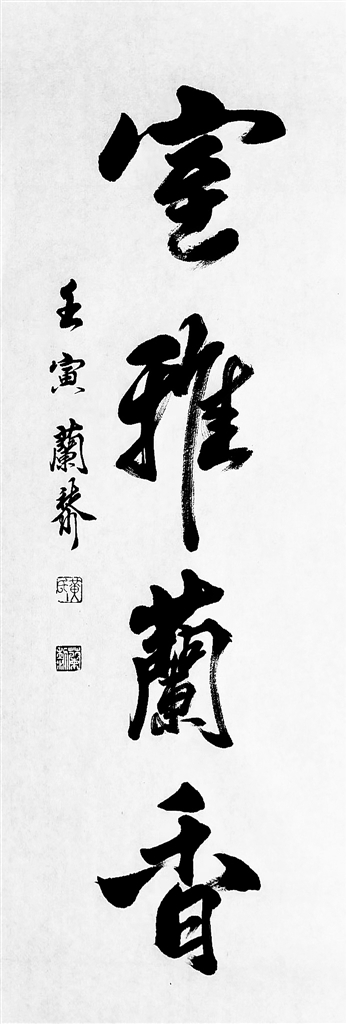 室雅蘭香
壬寅蘭琴